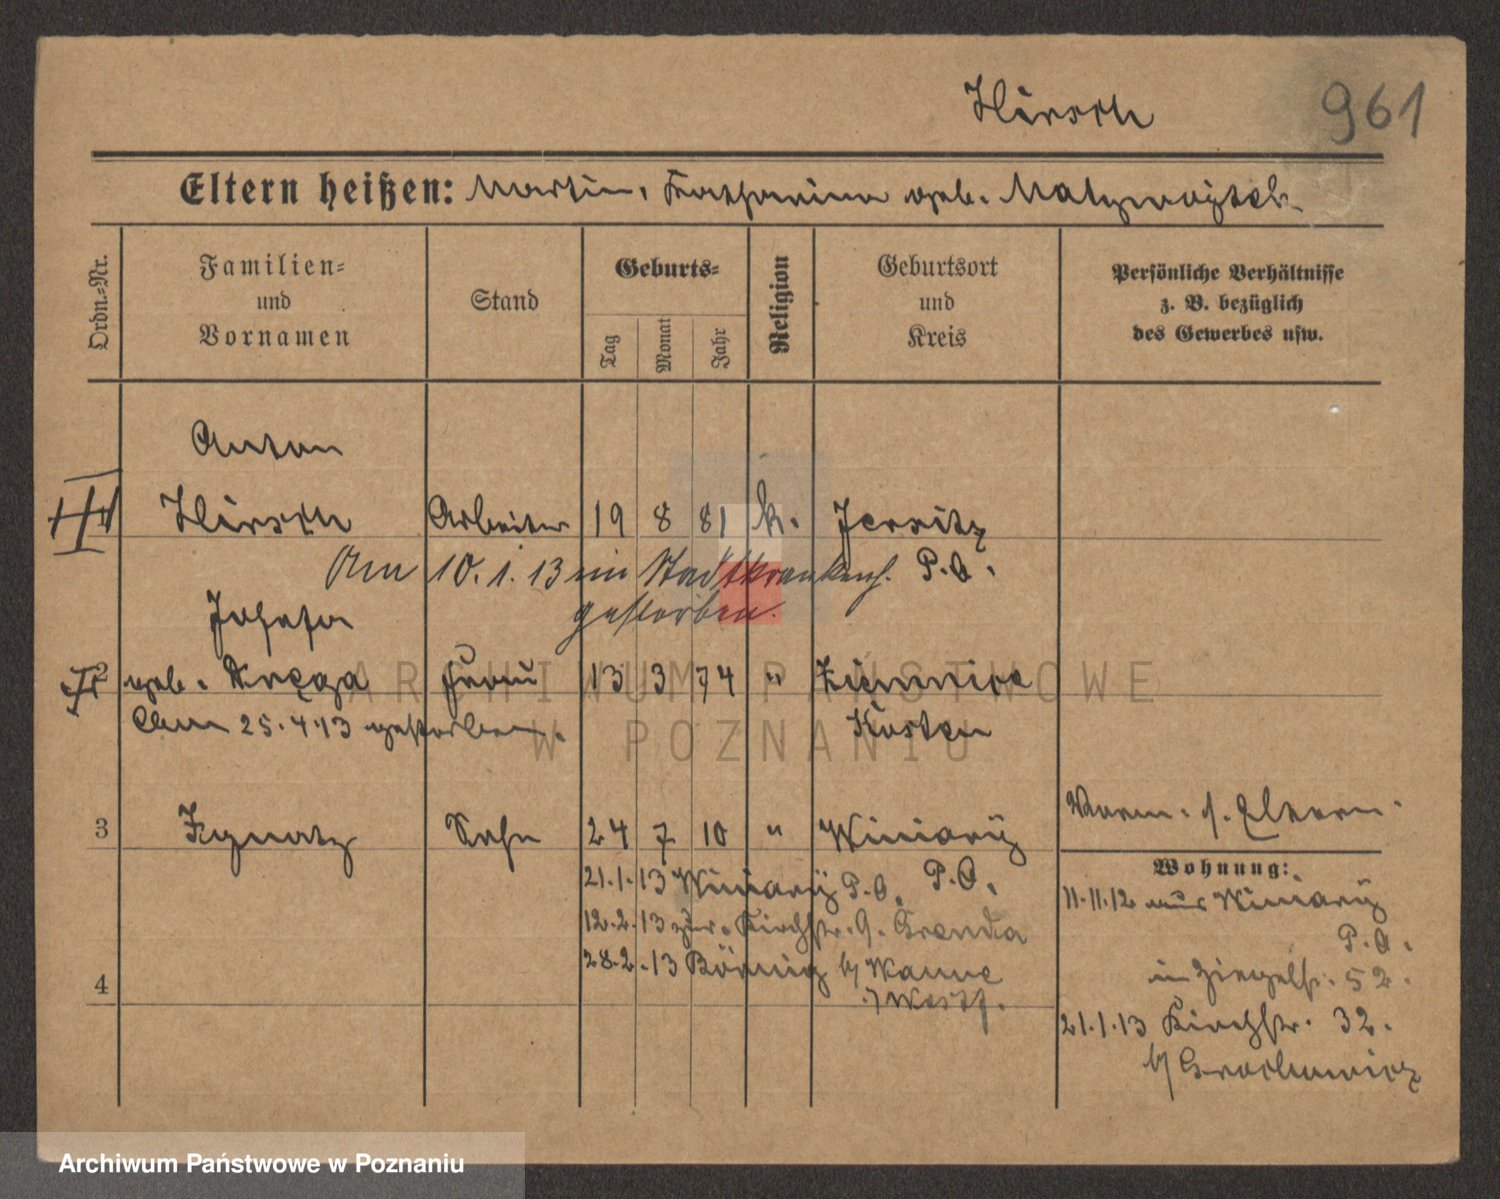 Hirsch
961
Eltern heißen: Martin, Katharina geb. Matywojtek
Ordn.-Nr.
Familien-
und
Vornamen
Stand
Geburts-
Tag
Monat
Jahr
Religion
Geburtsort
und
Kreis
Persönliche Verhältnisse
z. B. bezüglich
des Gewerbes usw.
Anton
1 Hirsch Arbeiter 19 8 81 k. Jersitz
Am 10. 1. 13 im Stadtkrankenh. P.O.
gestorben.
Josefa
2 geb. Frau 13 3 74 "
Am 25. 4. 13 gestorben. Kosten
3 Ignatz Sohn 24 7 10 " Winiary
P.O.
21. 1. 13 Winiary P.O.
12. 2. 13 zur. Kirchstr. 9.
28. 2. 13 b/
4
Vorm. s. Eltern.
Wohnung:
11. 11. 12 aus Winiary
P.O.
in Ziegelstr. 52.
21. 1. 13 Kirchstr. 32.
b/
ARCHIWUM PAŃSTWOWE
W POZNANIU
Archiwum Państwowe w Poznaniu